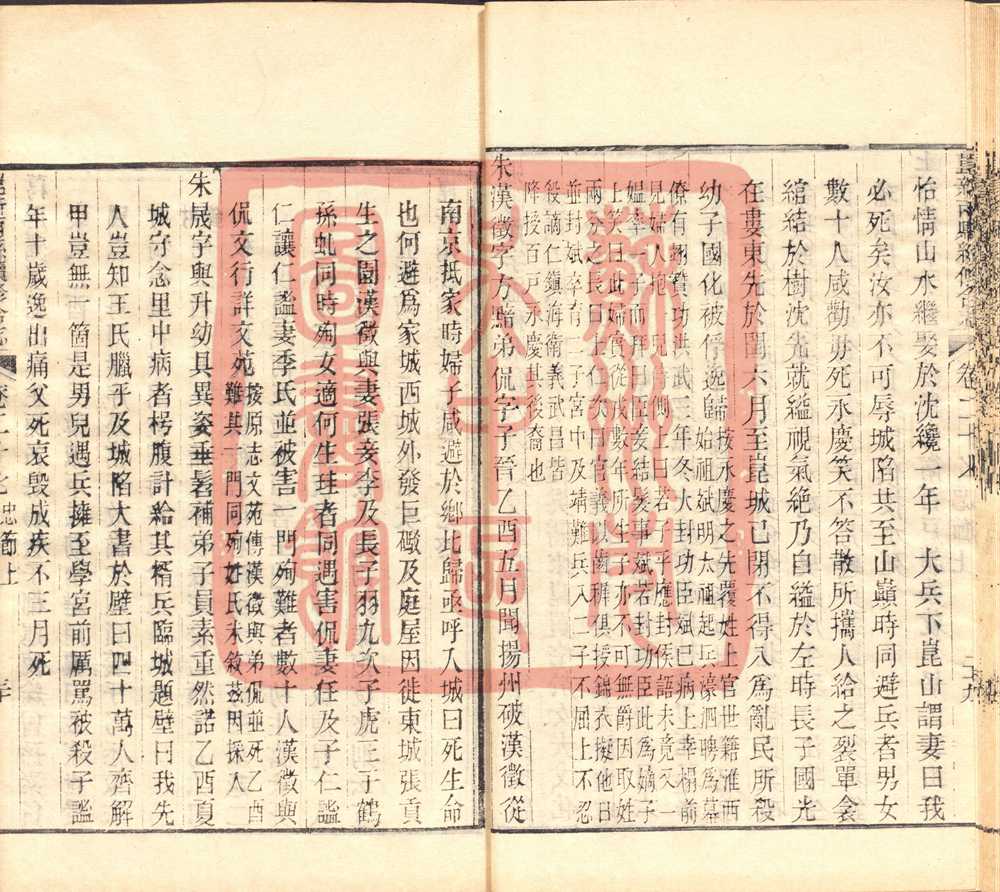 怡情山水繼娶於沈纔一年　大兵下崑山謂妻曰我
必死矣汝亦不可辱城陷共至山巔時同避兵者男女
數十人咸勸毋死永慶笑不答散所攜人給之裂單衾
綰結於樹沈先就縊視氣絶乃自縊於左時長子國光
在婁東先於閏六月至崑城已閉不得入爲亂民所殺
幼子國化被俘逸歸
按永慶之先覆姓上官世籍淮西
始祖斌明太祖起兵濠泗聘爲幕
僚有翊贊功洪武三年冬大封功臣斌已病上幸榻前
見婦人抱一兒侍側上曰若平應封侯語未竟又一
媪牽一子而拜曰臣妾結髮事斌若封功臣此爲嫡子
上笑曰此婦實從戎數年所生子亦不可無爵因取姓
兩分之長曰上仁次曰官義以南稗俱授錦衣擬他日
並封斌卒有二子宮中及靖難兵入二子不屈上不忍
殺謫仁鎮海衛義武昌皆
降授百戸永慶其後裔也
朱漢徵字方黯弟侃字子晉乙酉五月聞揚州破漢徵從
南京抵家時婦子咸避於鄉比歸亟呼入城曰死生命
也何避爲家城西城外發巨礮及庭屋因徙東城張貢
生之園漢徵與妻張妾李及長子羽九次子虎正子鶴
孫虬同時殉女適何生珏者同遇害侃妻任及子仁謚
仁讓仁謐妻季氏並被害一門殉難者數十人漢徵與
侃文行詳文苑
按原志文苑傳漢徵與弟侃並死乙酉
難其一門同殉姓氏朱敘茲因採入
朱晟字與升幼具異姿垂髫補弟子員素重然諾乙酉夏
城守念里中病者枵腹計給其糈兵臨城題壁曰我先
人豈知王氏臘乎及城陷大書於壁曰四十萬人齊解
甲豈無一箇是男兒遇兵擁至學宮前厲罵被殺子謐
年十歲逸出痛父死哀毀成疾不三月死
忠節上